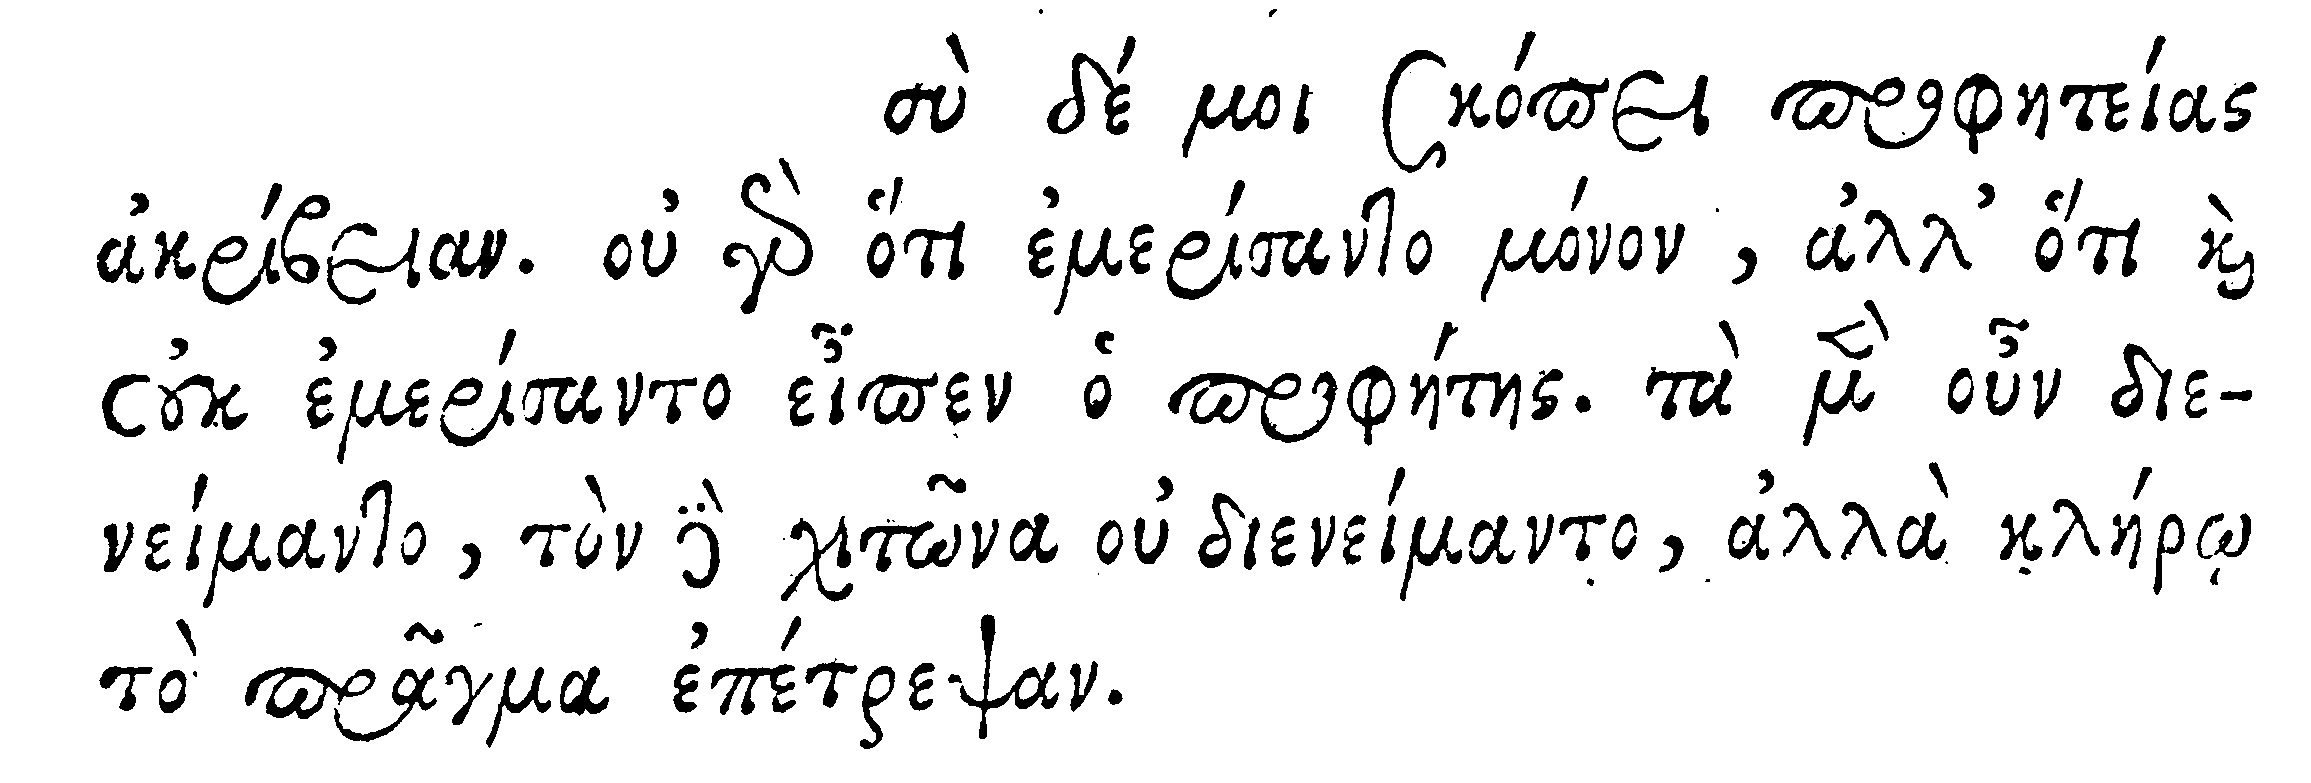 σὺ δέ μοι σκόπει προφητείας
ἀκρίβειαν. οὐ γὰρ ὅτι ἐμερίσαντο μόνον, ἀλλ’ ὅτι καὶ
οὐκ ἐμερίσαντο εἶπεν ὁ προφήτης. τὰ μὲν οὖν διε-
νείμαντο, τὸν δὲ χιτῶνα οὐ διενείμαντο, ἀλλὰ κλήρῳ
τὸ πρᾶγμα ἐπέτρεψαν.